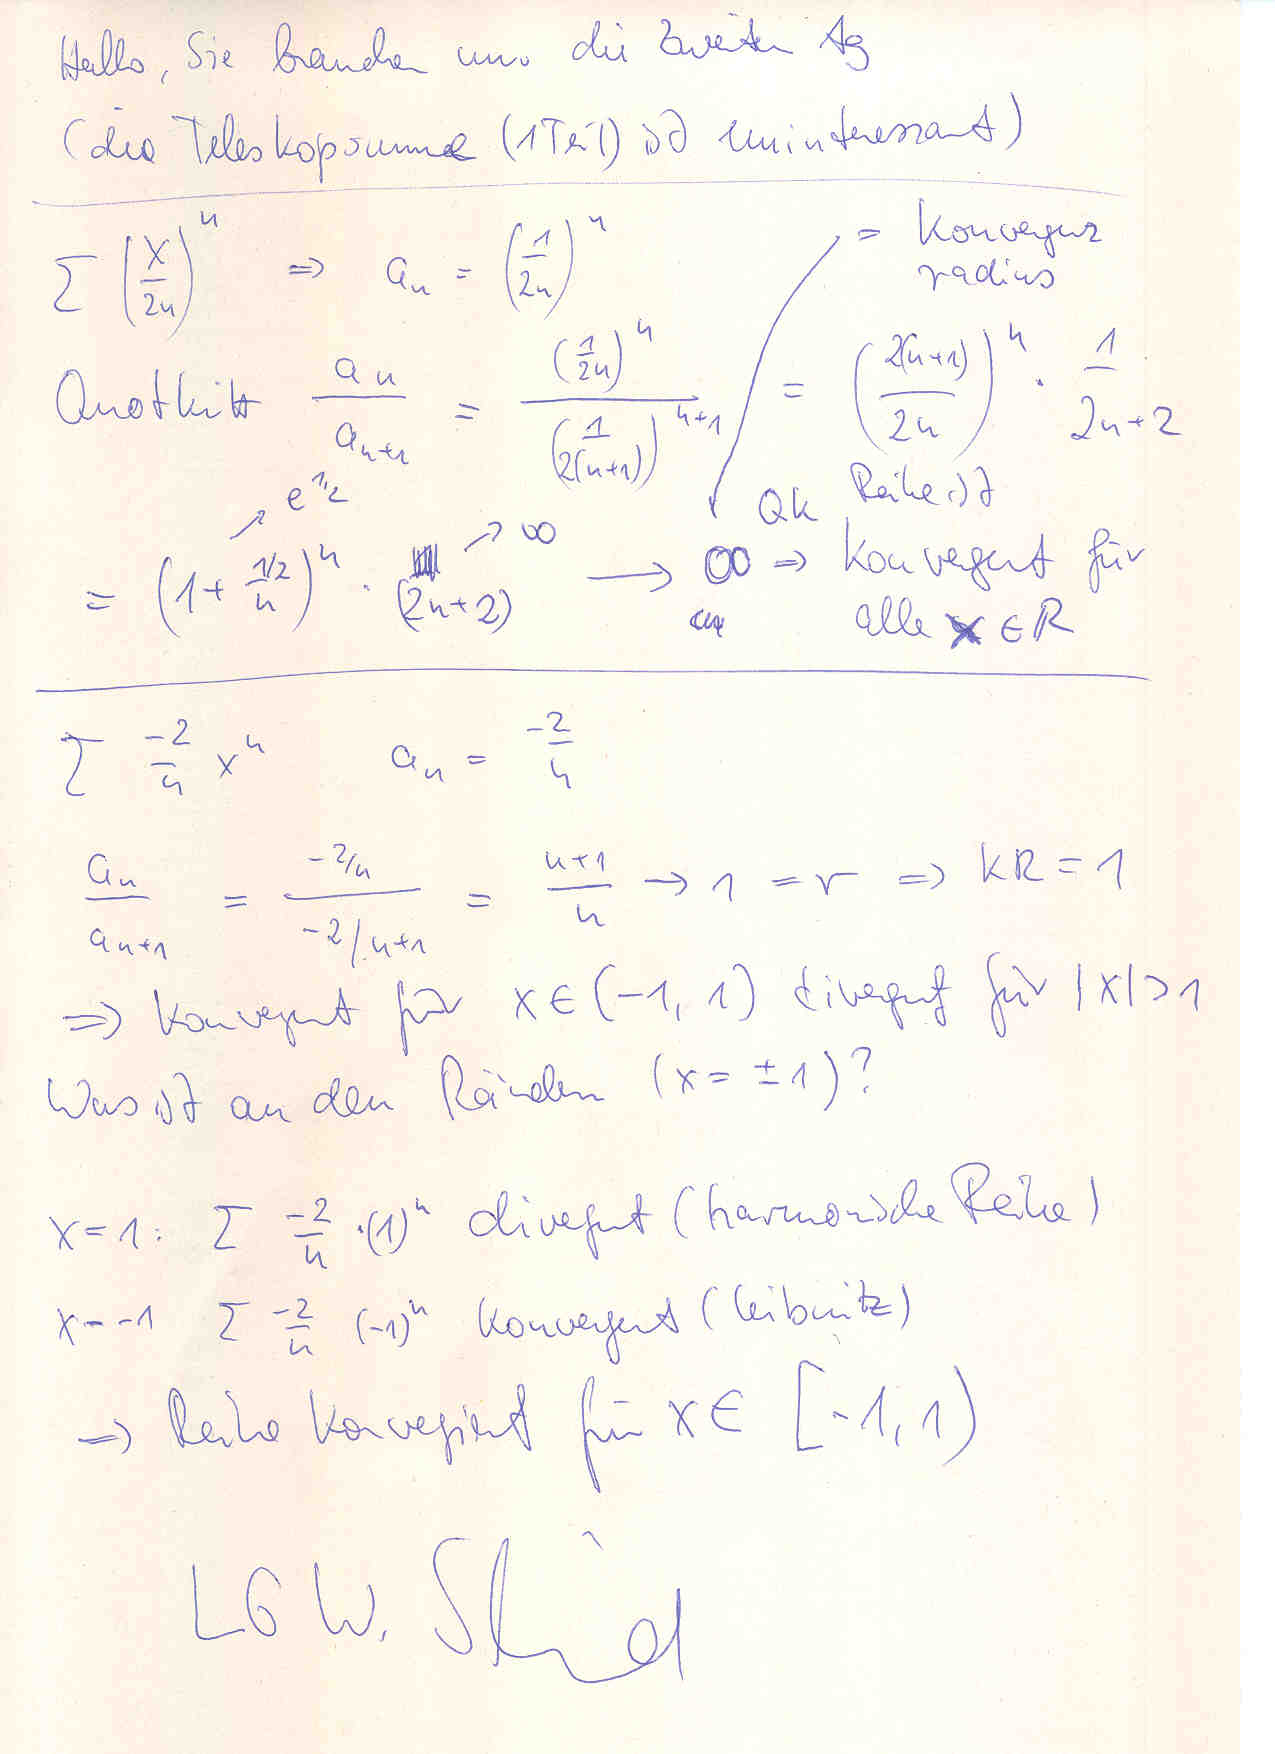 Hallo, Sie brauchen nur die zweiten Ag
(die Teleskopsumme (1 Teil) ist uninteressant)
∑ (x/2n)^n ⇒ a_n = (1/2n)^n
= Konvergenz
radius
Quotkrit a_n/a_{n+1} = (1/2n)^n / (1/2(n+1))^{n+1} = (2(n+1)/2n)^n · 1/2n+2
↗ e^{1/2} ↗ ∞
= (1 + 1/2/n)^n · (2n+2) ⟶ ∞ ⇒
QK Reihe ist
konvergent für
alle x ∈ ℝ
∑ -2/n x^n a_n = -2/n
a_n/a_{n+1} = -2/n / -2/n+1 = n+1/n → 1 = r ⇒ KR = 1
⇒ konvergent für x ∈ (-1, 1) divergent für |x| > 1
Was ist an den Rändern (x = ±1)?
x = 1: ∑ -2/n · (1)^n divergent (harmonische Reihe)
x = -1 ∑ -2/n (-1)^n konvergent (Leibnitz)
⇒ Reihe konvergiert für x ∈ [-1, 1)
LG W.